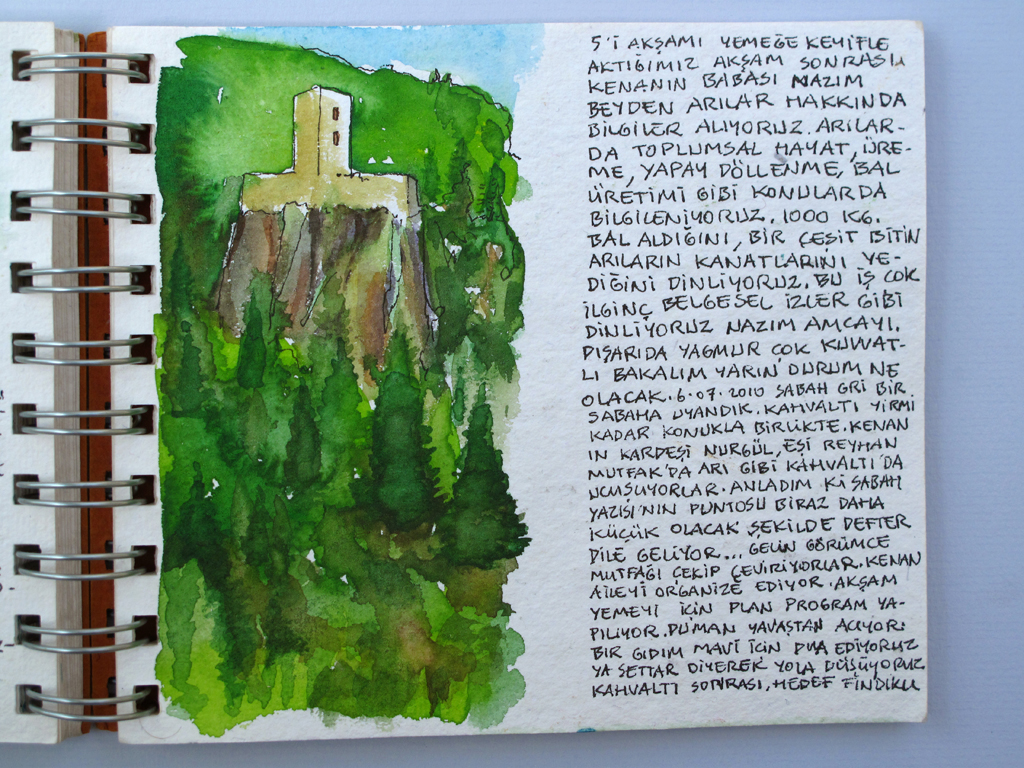 5'İ AKŞAMI YEMEĞE KEYİFLE
AKTIĞIMIZ AKŞAM SONRASI,
KENANIN BABASI NAZIM
BEYDEN ARILAR HAKKINDA
BİLGİLER ALIYORUZ. ARILAR-
DA TOPLUMSAL HAYAT, ÜRE-
ME, YAPAY DÖLLENME, BAL
ÜRETİMİ GİBİ KONULARDA
BİLGİLENİYORUZ. 1000 KG.
BAL ALDIĞINI, BİR ÇEŞİT BİTİN
ARILARIN KANATLARINI YE-
DİĞİNİ DİNLİYORUZ. BU İŞ ÇOK
İLGİNÇ BELGESEL İZLER GİBİ
DİNLİYORUZ NAZIM AMCAYI.
DIŞARIDA YAGMUR ÇOK KUVVAT-
LI BAKALIM YARIN DURUM NE
OLACAK. 6.07.2010 SABAH GRİ BİR
SABAHA UYANDIK. KAHVALTI YİRMİ
KADAR KONUKLA BİRLİKTE. KENAN
IN KARDEŞİ NURGÜL, EŞİ REYHAN
MUTFAK'DA ARI GİBİ KAHVALTI'DA
UÇUŞUYORLAR. ANLADIM Kİ SABAH
YAZISI'NIN PUNTOSU BİRAZ DAHA
KÜÇÜK OLACAK ŞEKİLDE DEFTER
DİLE GELİYOR... GELİN GÖRÜMCE
MUTFAĞI ÇEKİP ÇEVİRİYORLAR. KENAN
AİLEYİ ORGANİZE EDİYOR. AKŞAM
YEMEYİ İÇİN PLAN PROGRAM YA-
PILIYOR. DUMAN YAVAŞTAN AÇIYOR.
BİR GIDIM MAVİ İÇİN DUA EDİYORUZ
YA SETTAR DİYEREK YOLA DÜŞÜYORUZ
KAHVALTI SONRASI, HEDEF FINDIKLI